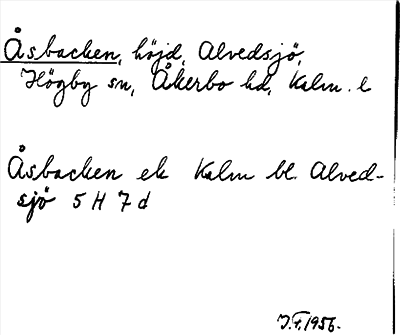 Åsbacken, höjd, Alvedsjö,
Högby sn, Åkerbo hd, Kalm. l
Åsbacken ek Kalm bl. Alved-
sjö 5 H 7 d
J.F. 1956.